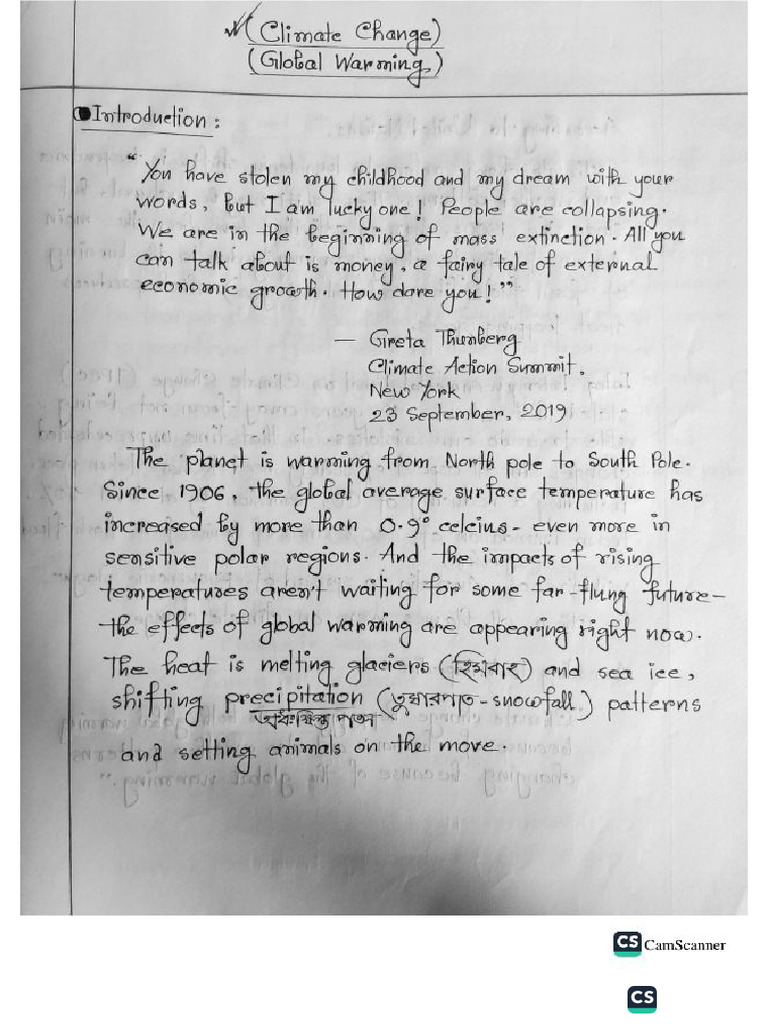 (Climate Change)
(Global Warming)
Introduction:
"You have stolen my childhood and my dream with your
words, but I am lucky one! People are collapsing.
We are in the beginning of mass extinction. All you
can talk about is money, a fairy tale of external
economic growth. How dare you!"
— Greta Thunberg
Climate Action Summit.
New York
23 September, 2019
The planet is warming, from North pole to South Pole.
Since 1906, the global average surface temperature has
increased by more than 0.9° celcius - even more in
sensitive polar regions. And the impacts of rising
temperatures aren't waiting for some far-flung future-
the effects of global warming are appearing right now.
The heat is melting glaciers (হিমবাহ) and sea ice,
shifting precipitation (তুষারপাত - snowfall) patterns
and setting animals on the move.
CS CamScanner
CS